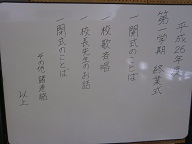 平成26年度
第一学期 終業式
一 開式のことば
一 校歌斉唱
一 校長先生のお話
一 閉式のことば
その他諸連絡
以上